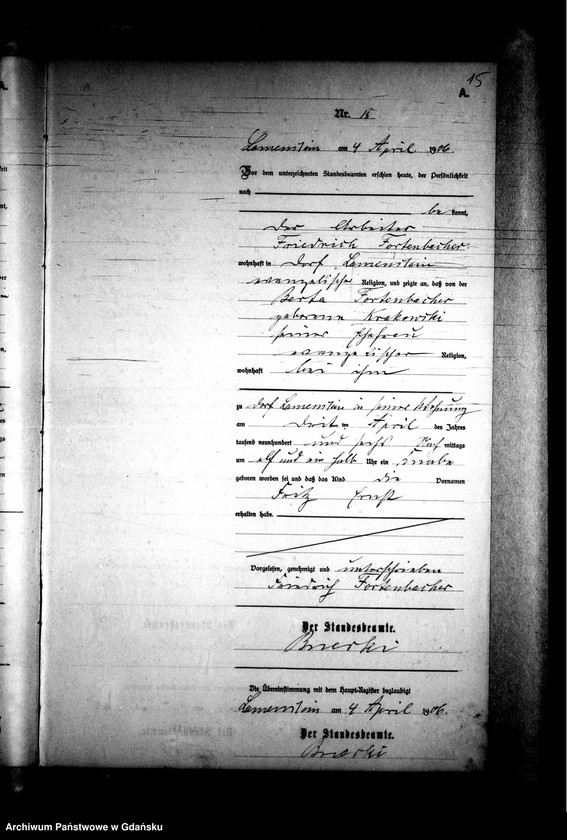 15
A.
Nr. 15
Lamenstein am 4 April 1906.
Vor dem unterzeichneten Standesbeamten erschien heute, der Persönlichkeit
nach
be kannt,
der Arbeiter
Friedrich Fortenbacher
wohnhaft in Dorf Lamenstein
evangelischer Religion, und zeigte an, daß von der
Berta Fortenbacher
geborene Krakowski
seiner Ehefrau
evangelischer Religion,
wohnhaft bei ihm
zu Dorf Lamenstein in seiner Wohnung
am drei ten April des Jahres
tausend neunhundert und sechs Nach mittags
um elf und ein halb Uhr ein Knabe
geboren worden sei und daß das Kind die Vornamen
Fritz Ernst
erhalten habe.
Vorgelesen, genehmigt und unterschrieben
Friedrich Fortenbacher
Der Standesbeamte.
Die Übereinstimmung mit dem Haupt-Register beglaubigt
Lamenstein am 4 April 1906.
Der Standesbeamte.
Archiwum Państwowe w Gdańsku